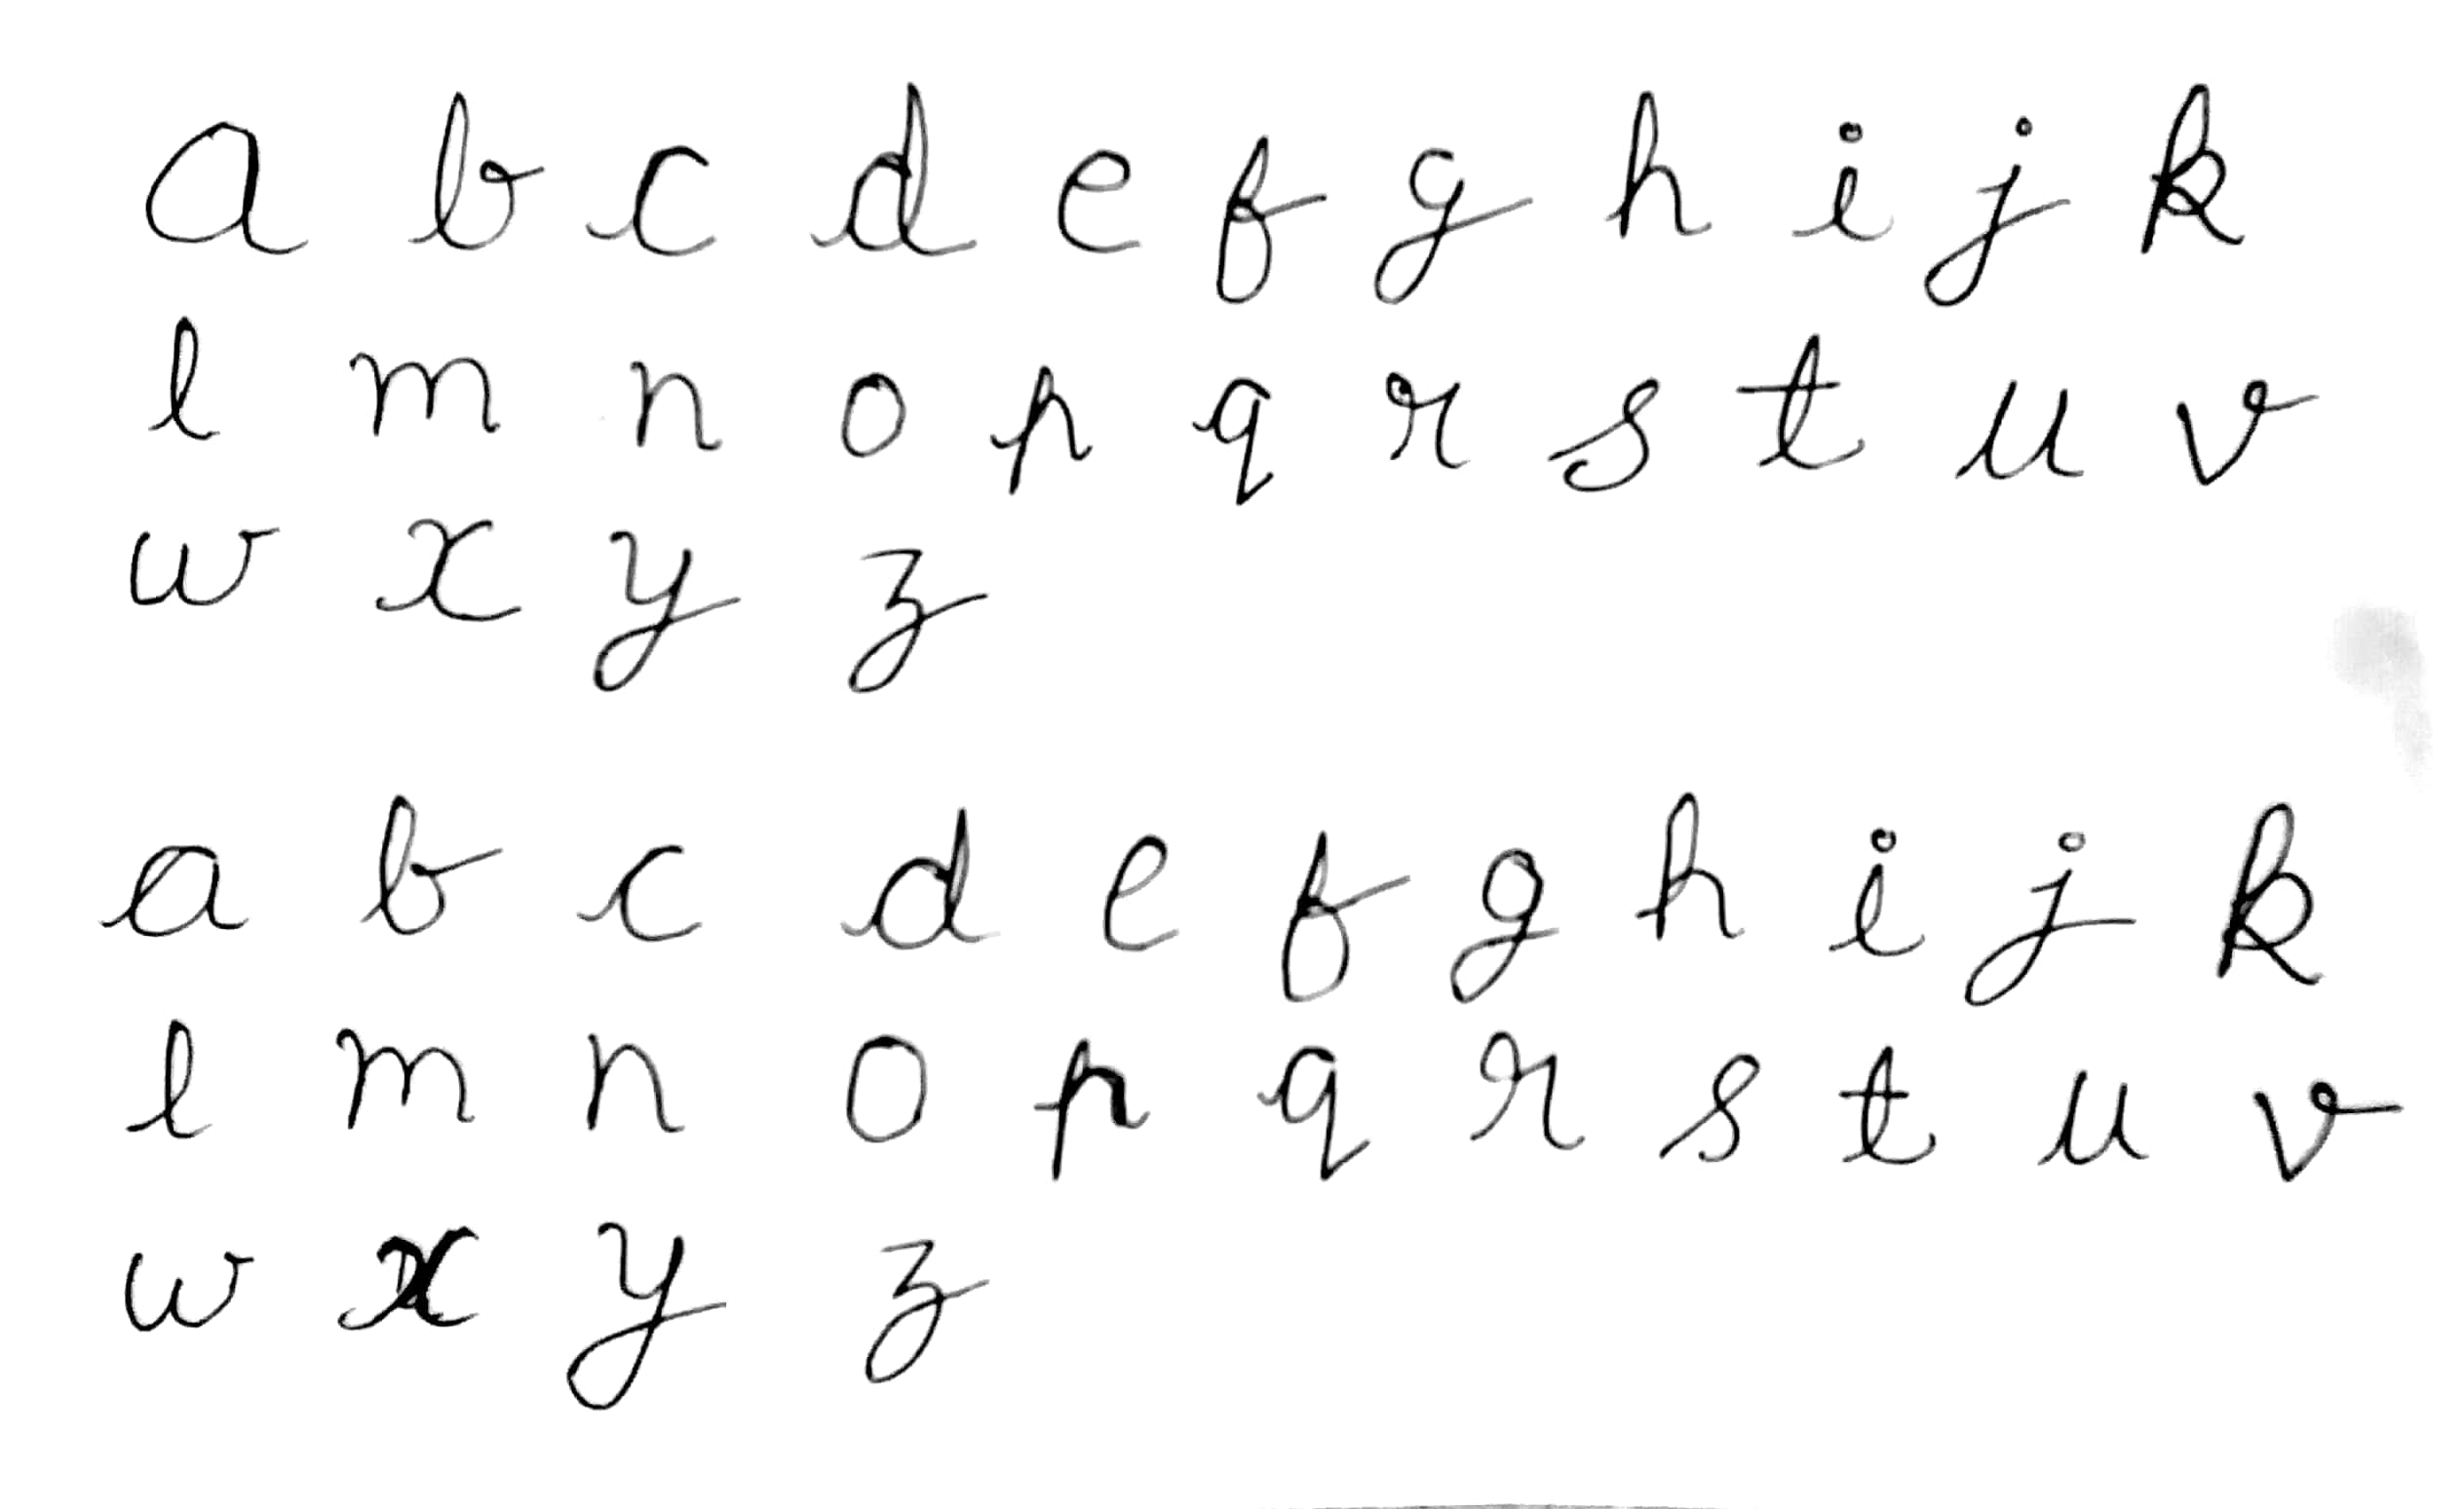 a b c d e f g h i j k
l m n o p q r s t u v
w x y z
a b c d e f g h i j k
l m n o p q r s t u v
w x y z